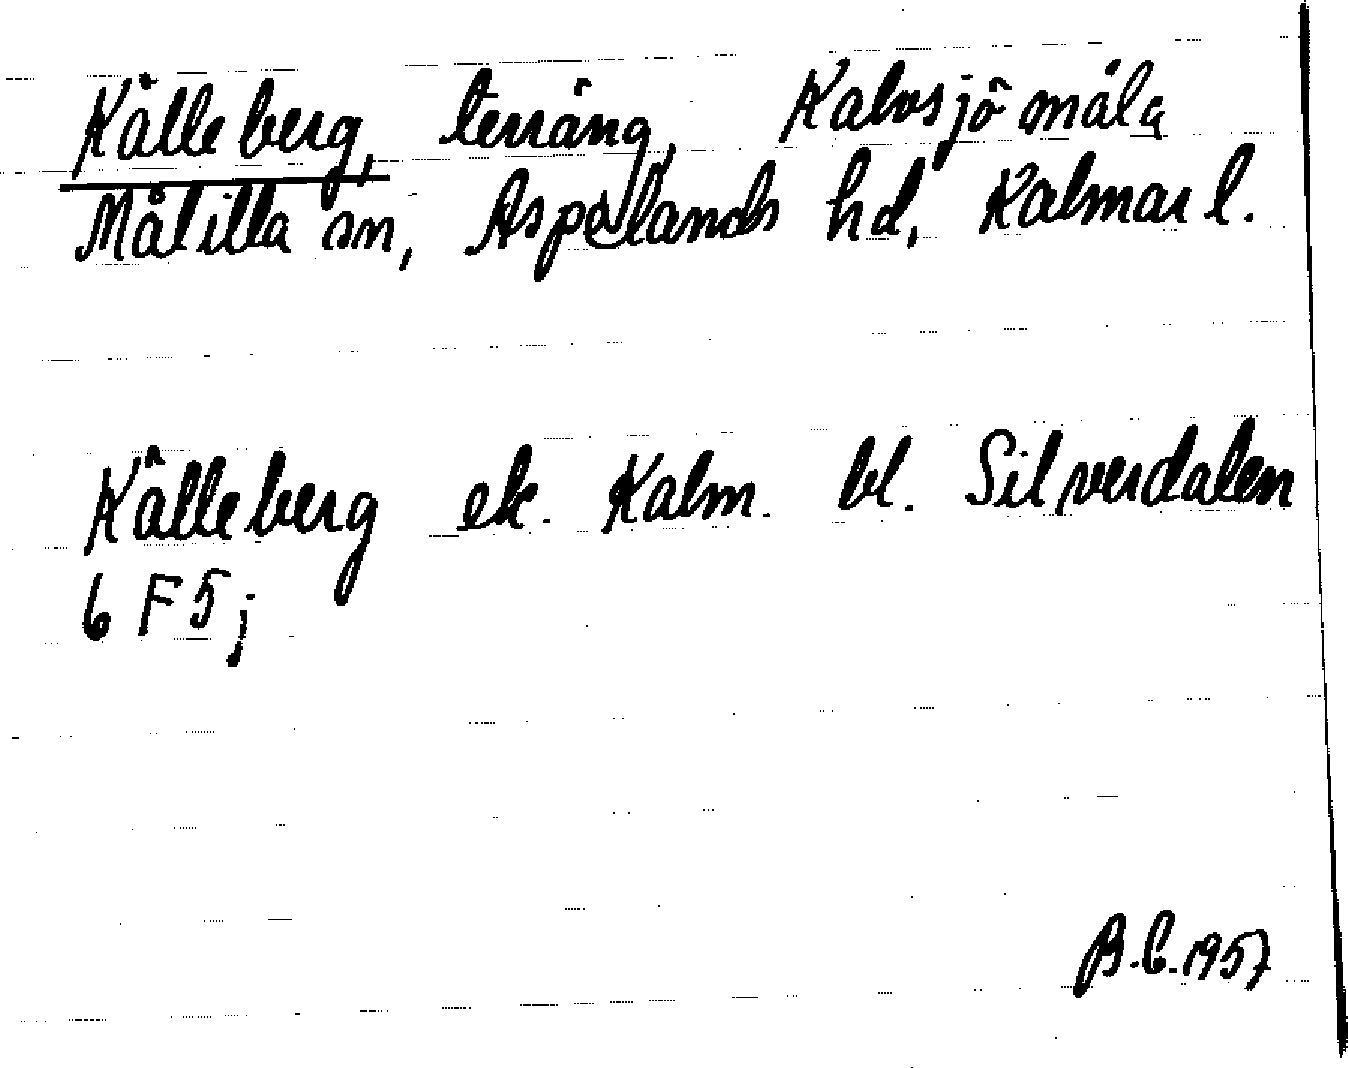 Kålleberg, terräng, Kalvsjömåla
Målilla sn, Aspelands hd, Kalmar l.
Kålleberg ek. Kalm. bl. Silverdalen
6 F5j
B.C. 1957